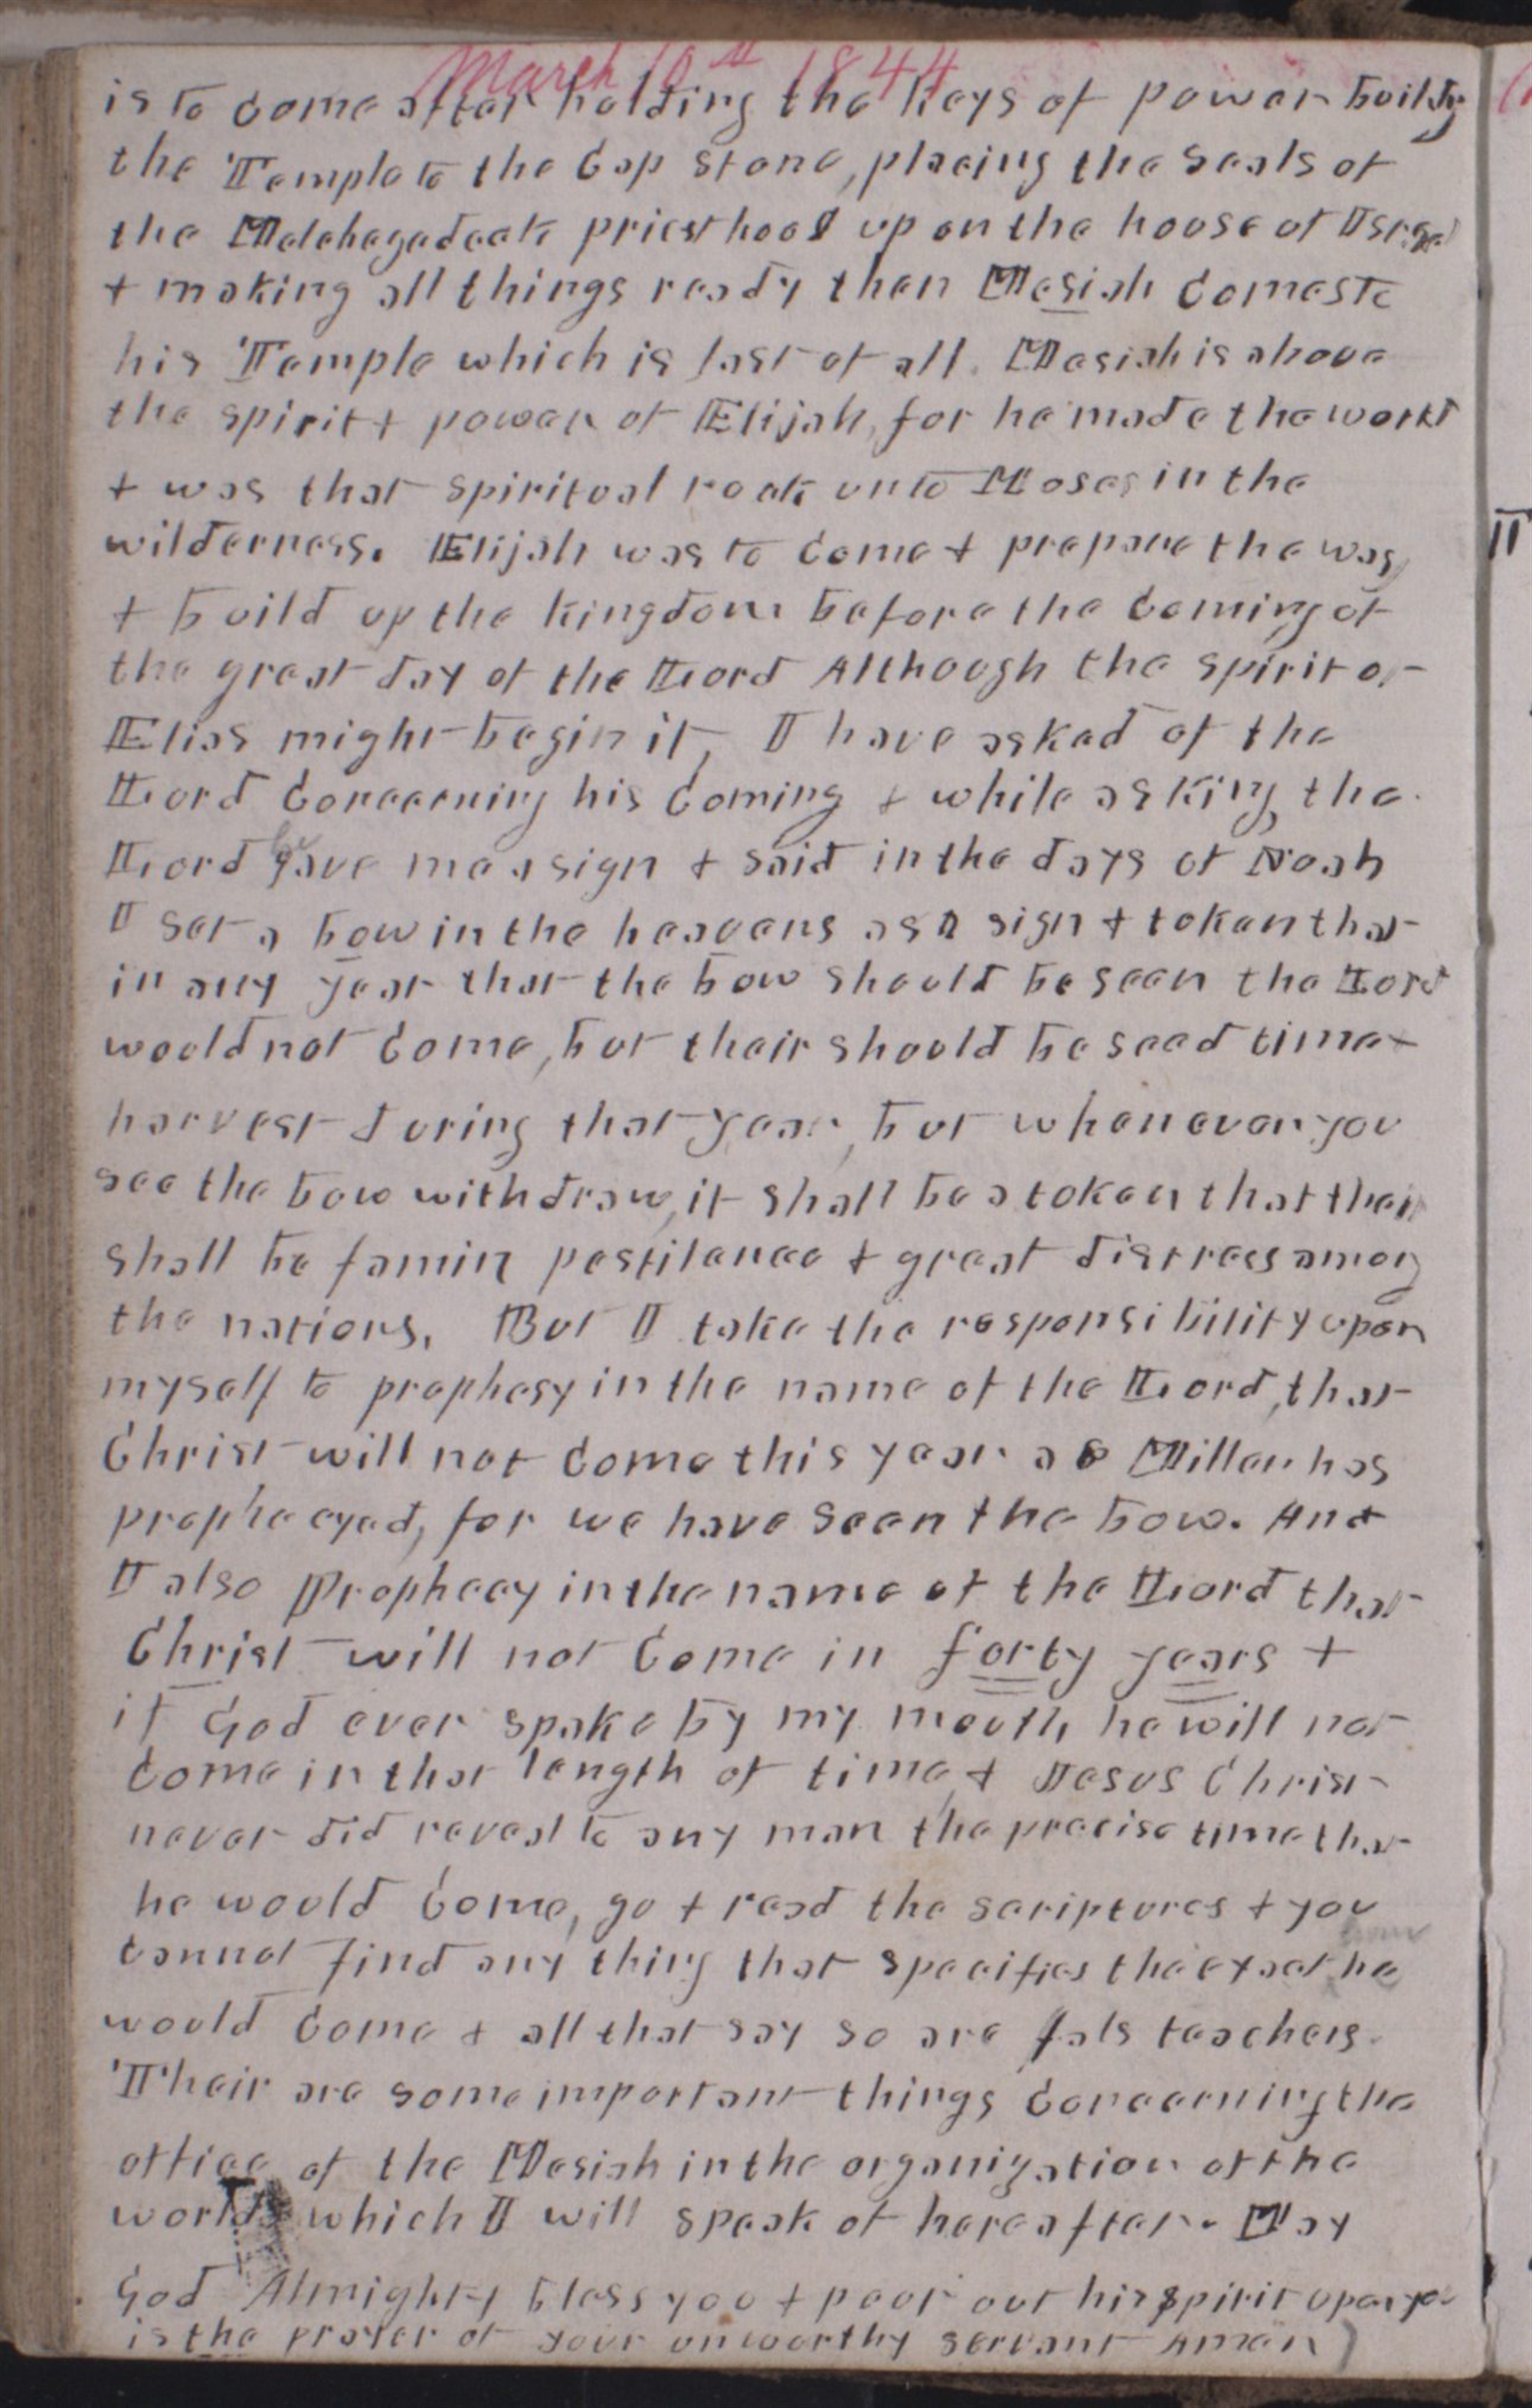 March 10th 1844
is to come after holding the keys of power buildg
the Temple to the Cap stone, placing the seals of
the Melchezadeck priesthood up on the house of Israel
+ making all things ready then Mesiah comes to
his Temple which is last of all. Mesiah is above
the spirit + power of Elijah, for he made the world
+ was that spiritual rock unto Moses in the
wilderness. Elijah was to come + prepare the way
+ build up the kingdom before the coming of
the great day of the Lord Although the spirit of
Elias might begin it, I have asked of the
Lord concerning his coming + while asking the
Lord gave me a sign + said in the days of Noah
I set a bow in the heavens as a sign + token that
in any year that the bow should be seen the Lord
would not come, but their should be seed time +
harvest during that year, but whenever you
see the bow withdraw, it shall be a token that their
shall be famin pestilence + great distress among
the nations, But I take the responsibility upon
myself to prophesy in the name of the Lord, that
Christ will not come this year as Miller has
prophecyed, for we have seen the bow. And
I also Prophecy in the name of the Lord that
Christ will not come in forty years +
if God ever spake by my mouth he will not
come in that length of time, + Jesus Christ
never did reveal to any man the precise time that
he would come, go + read the scriptures + you
cannot find any thing that specifies the exact hour he
would come + all that say so are fals teachers.
Their are some important things concerning the
office of the Mesiah in the organization of the
world, which I will speak of hereafter. May
God Almighty bless you + poor out his spirit upon you
is the prayer of your unworthy servant Amen)